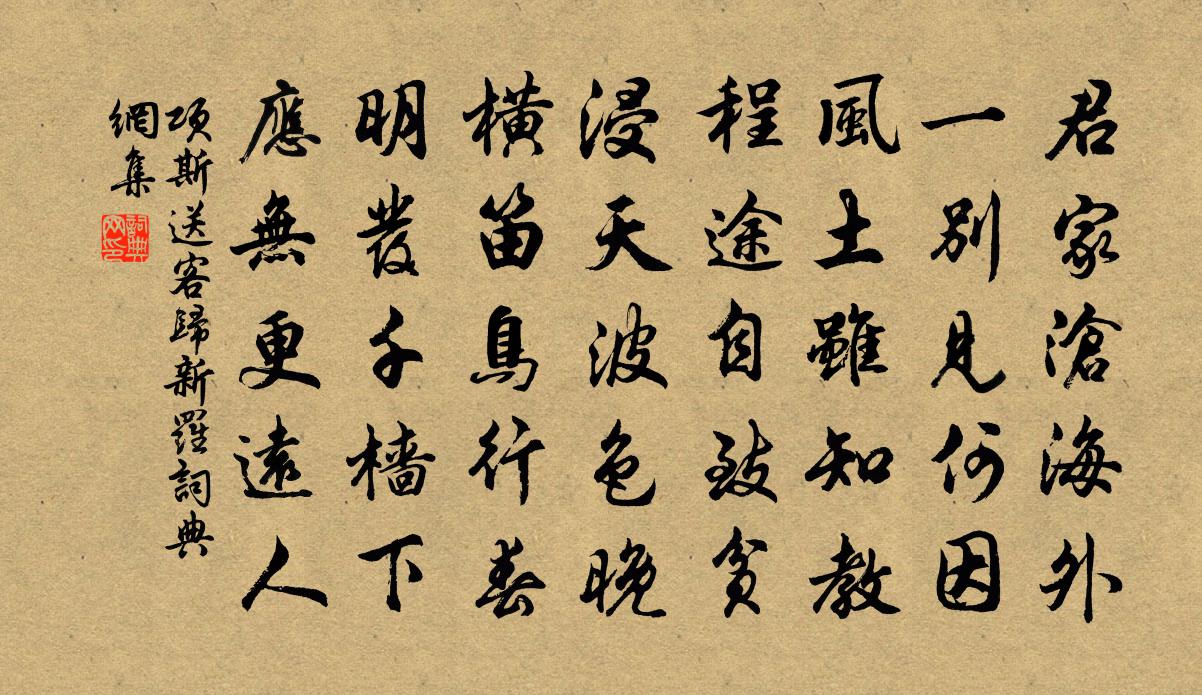 君家滄海外
一別見何因
風土雖知教
程途自致貧
浸天波色晚
橫笛鳥行春
明發千檣下
應無更遠人
項斯送客歸新羅詞典
網集
詞典
网印